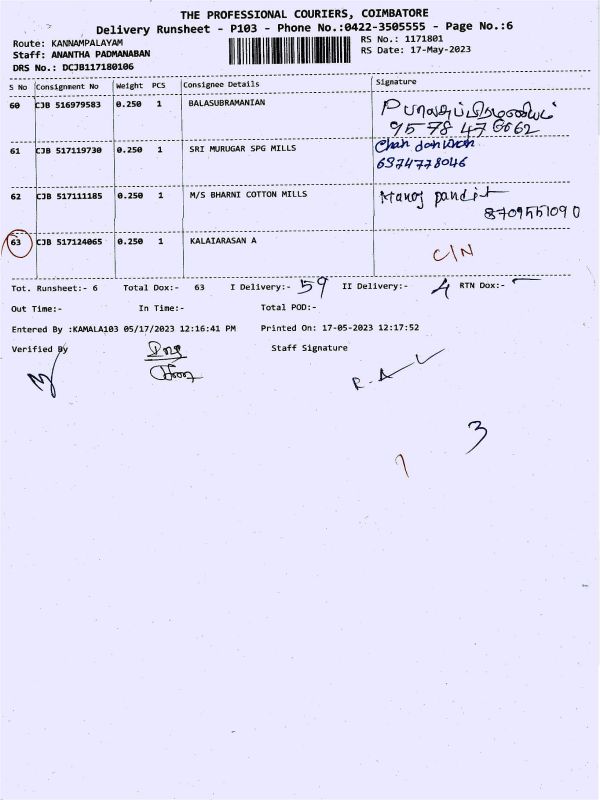 THE PROFESSIONAL COURIERS, COIMBATORE
Delivery Runsheet - P103 - Phone No.:0422-3505555 - Page No.:6
Route: KANNAMPALAYAM RS No.: 1171801
Staff: ANANTHA PADMANABAN RS Date: 17-May-2023
DRS No.: DCJB117180106
S No Consignment No Weight PCS Consignee Details Signature
60 CJB 516979583 0.250 1 BALASUBRAMANIAN P பாலசுப்பிரமணியம்
61 CJB 517119730 0.250 1 SRI MURUGAR SPG MILLS
6374778046
62 CJB 517111185 0.250 1 M/S BHARNI COTTON MILLS Manoj pandit
8709551090
63 CJB 517124065 0.250 1 KALAIARASAN A C/N
Tot. Runsheet:- 6 Total Dox:- 63 I Delivery:- 59 II Delivery:- 4 RTN Dox:- –
Out Time:- In Time:- Total POD:-
Entered By :KAMALA103 05/17/2023 12:16:41 PM Printed On: 17-05-2023 12:17:52
Verified By Staff Signature
3
1